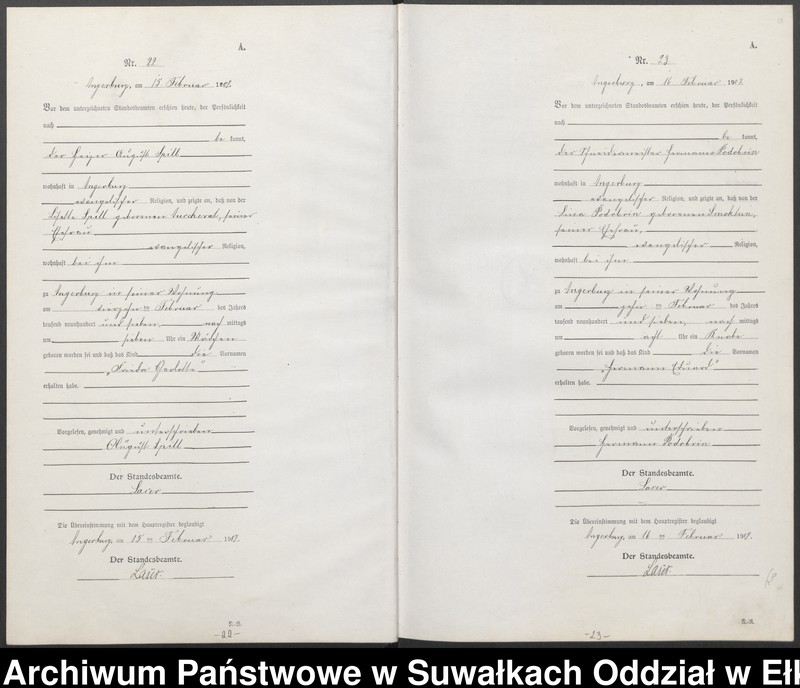 A.
Nr. 22
Angerburg, am 15 Februar 1907.
Vor dem unterzeichneten Standesbeamten erschien heute, der Persönlichkeit
nach
be kannt,
der Heizer August Spill
wohnhaft in Angerburg
evangelischer Religion, und zeigte an, daß von der
Spill geborenen seiner
Ehefrau
evangelischer Religion,
wohnhaft bei ihm
zu Angerburg in seiner Wohnung
am vierzehn ten Februar des Jahres
tausend neunhundert und sieben, nach mittags
um sieben Uhr ein Mädchen
geboren worden sei und daß das Kind die Vornamen
„Frieda Charlotte“
erhalten habe.
Vorgelesen, genehmigt und unterschrieben
August Spill
Der Standesbeamte.
Laser
Die Übereinstimmung mit dem Hauptregister beglaubigt
Angerburg, am 15 ten Februar 1907.
Der Standesbeamte.
Laser
-22-
A.
Nr. 23
Angerburg, am 16 Februar 1907.
Vor dem unterzeichneten Standesbeamten erschien heute, der Persönlichkeit
nach
be kannt,
der Schneidermeister Hermann Podobrin
wohnhaft in Angerburg
evangelischer Religion, und zeigte an, daß von der
Lina Podobrin geborenen
seiner Ehefrau,
evangelischer Religion,
wohnhaft bei ihm
zu Angerburg in seiner Wohnung
am zehn ten Februar des Jahres
tausend neunhundert und sieben, nach mittags
um acht Uhr ein Knabe
geboren worden sei und daß das Kind die Vornamen
„Hermann Eduard“
erhalten habe.
Vorgelesen, genehmigt und unterschrieben
Hermann Podobrin
Der Standesbeamte.
Laser
Die Übereinstimmung mit dem Hauptregister beglaubigt
Angerburg, am 16 ten Februar 1907.
Der Standesbeamte.
Laser
-23-
Archiwum Państwowe w Suwałkach Oddział w Ełk